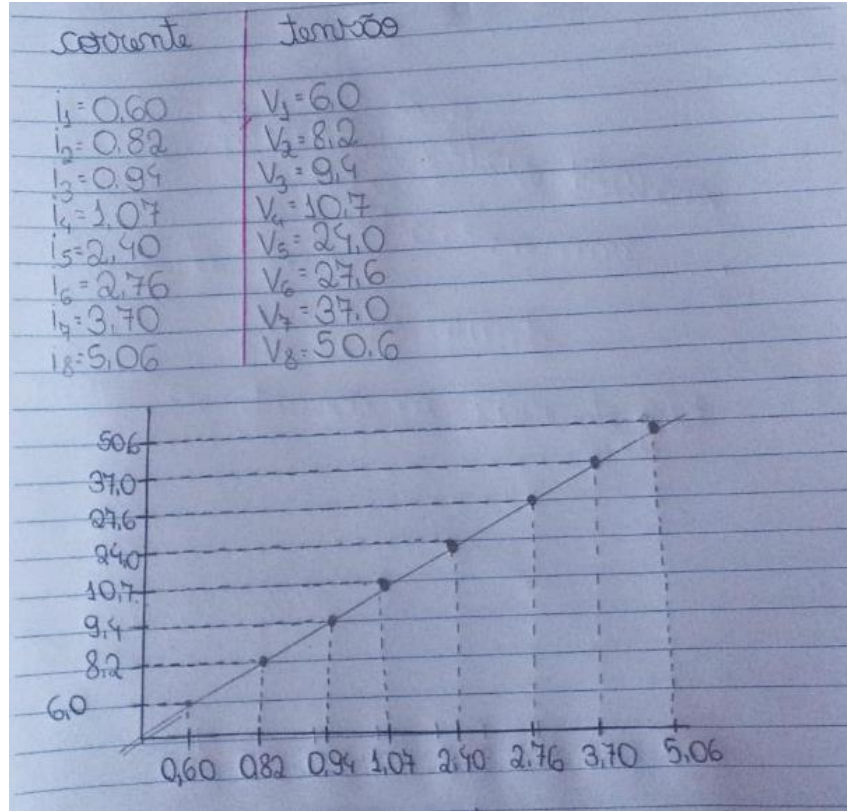 corrente tensão
i1=0,60 V1=6,0
i2=0,82 V2=8,2
i3=0,94 V3=9,4
i4=1,07 V4=10,7
i5=2,40 V5=24,0
i6=2,76 V6=27,6
i7=3,70 V7=37,0
i8=5,06 V8=50,6
50,6
37,0
27,6
24,0
10,7
9,4
8,2
6,0
0,60 0,82 0,94 1,07 2,40 2,76 3,70 5,06